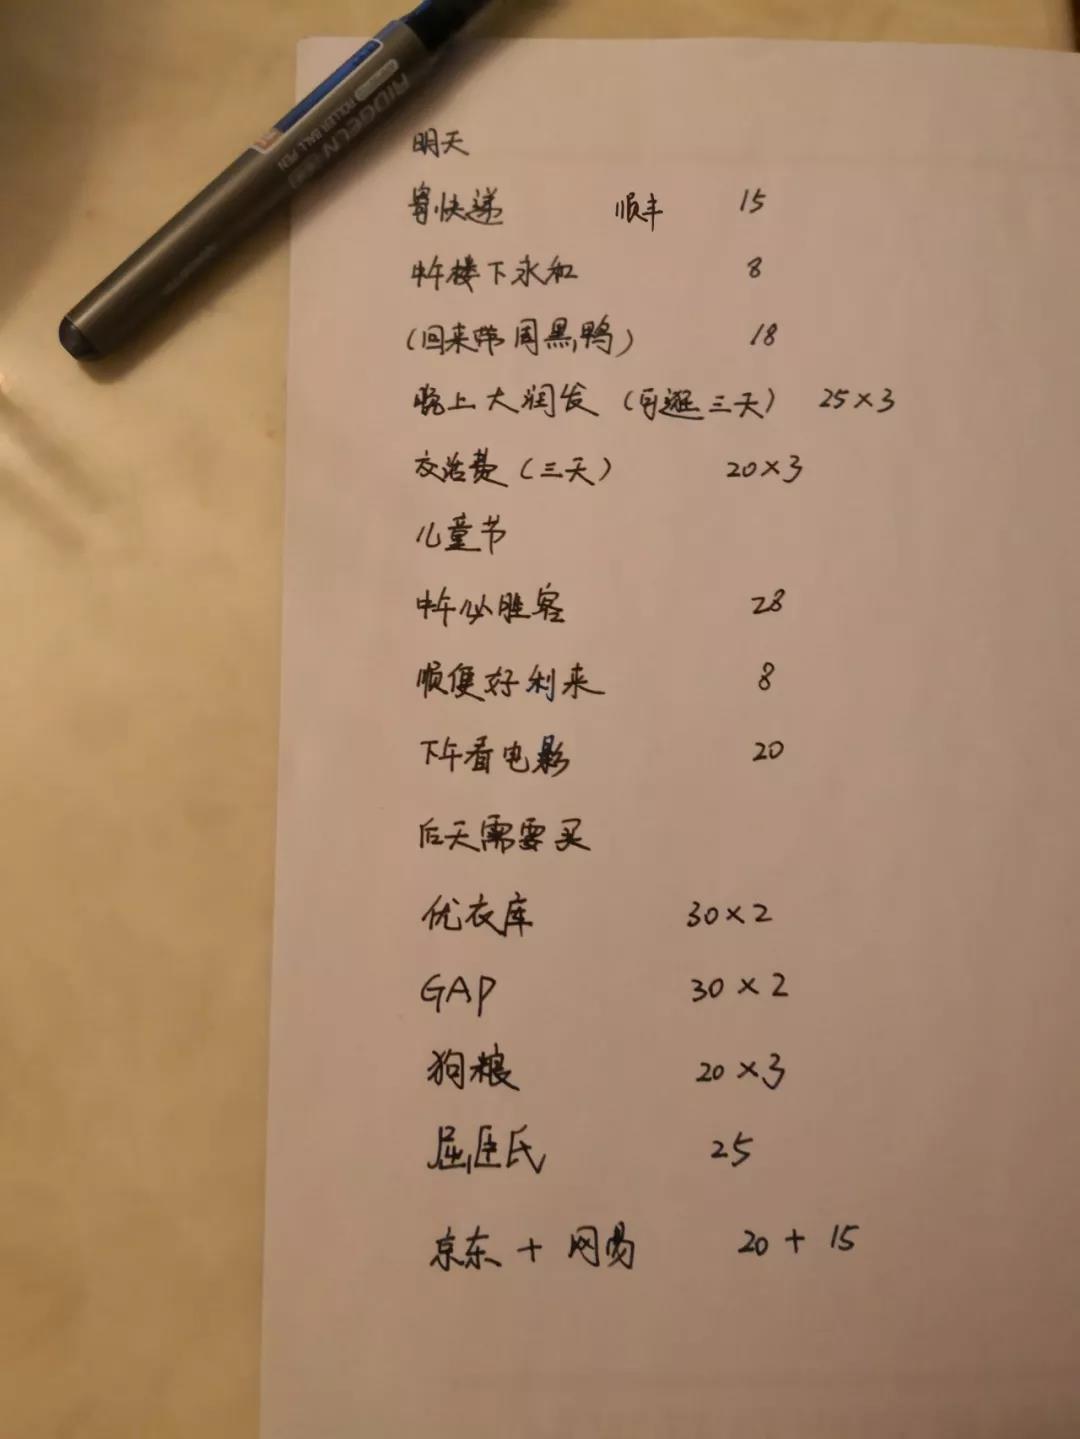 RIDGELN
ROLLER BALL PEN
明天
寄快递 顺丰 15
中午楼下永和 8
(回来带周黑鸭) 18
晚上大润发 (可逛三天) 25×3
交话费 (三天) 20×3
儿童节
中午必胜客 28
顺便好利来 8
下午看电影 20
后天需要买
优衣库 30×2
GAP 30×2
狗粮 20×3
屈臣氏 25
京东 + 网易 20 + 15